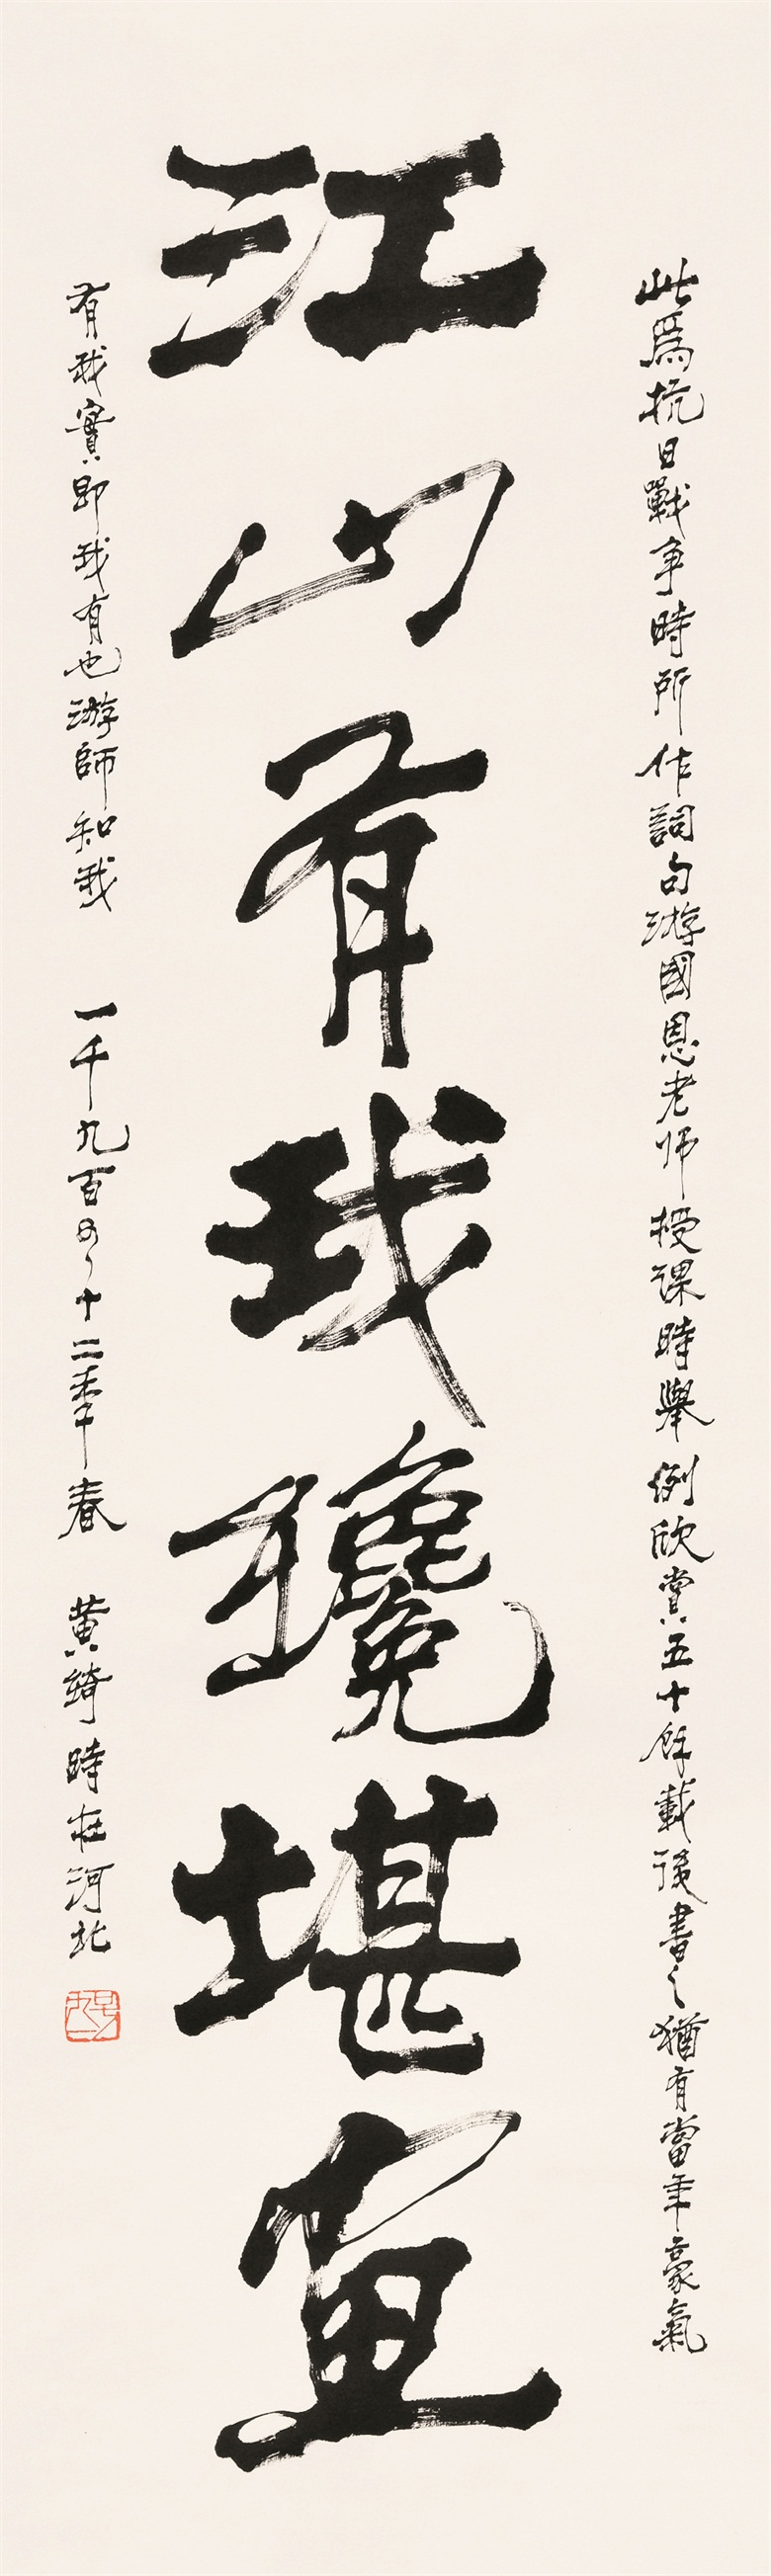 此爲抗日戰争時所作詞句游國恩老师授课時舉例欣賞五十餘載後書之猶有當年豪氣
江山有我纔堪畫
有我實即我有也游師知我 一千九百九十二年春 黄綺時在河北